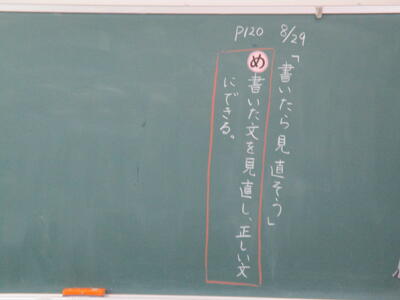 P120 8/29
「書いたら見直そう」
め 書いた文を見直し、正しい文
にできる。